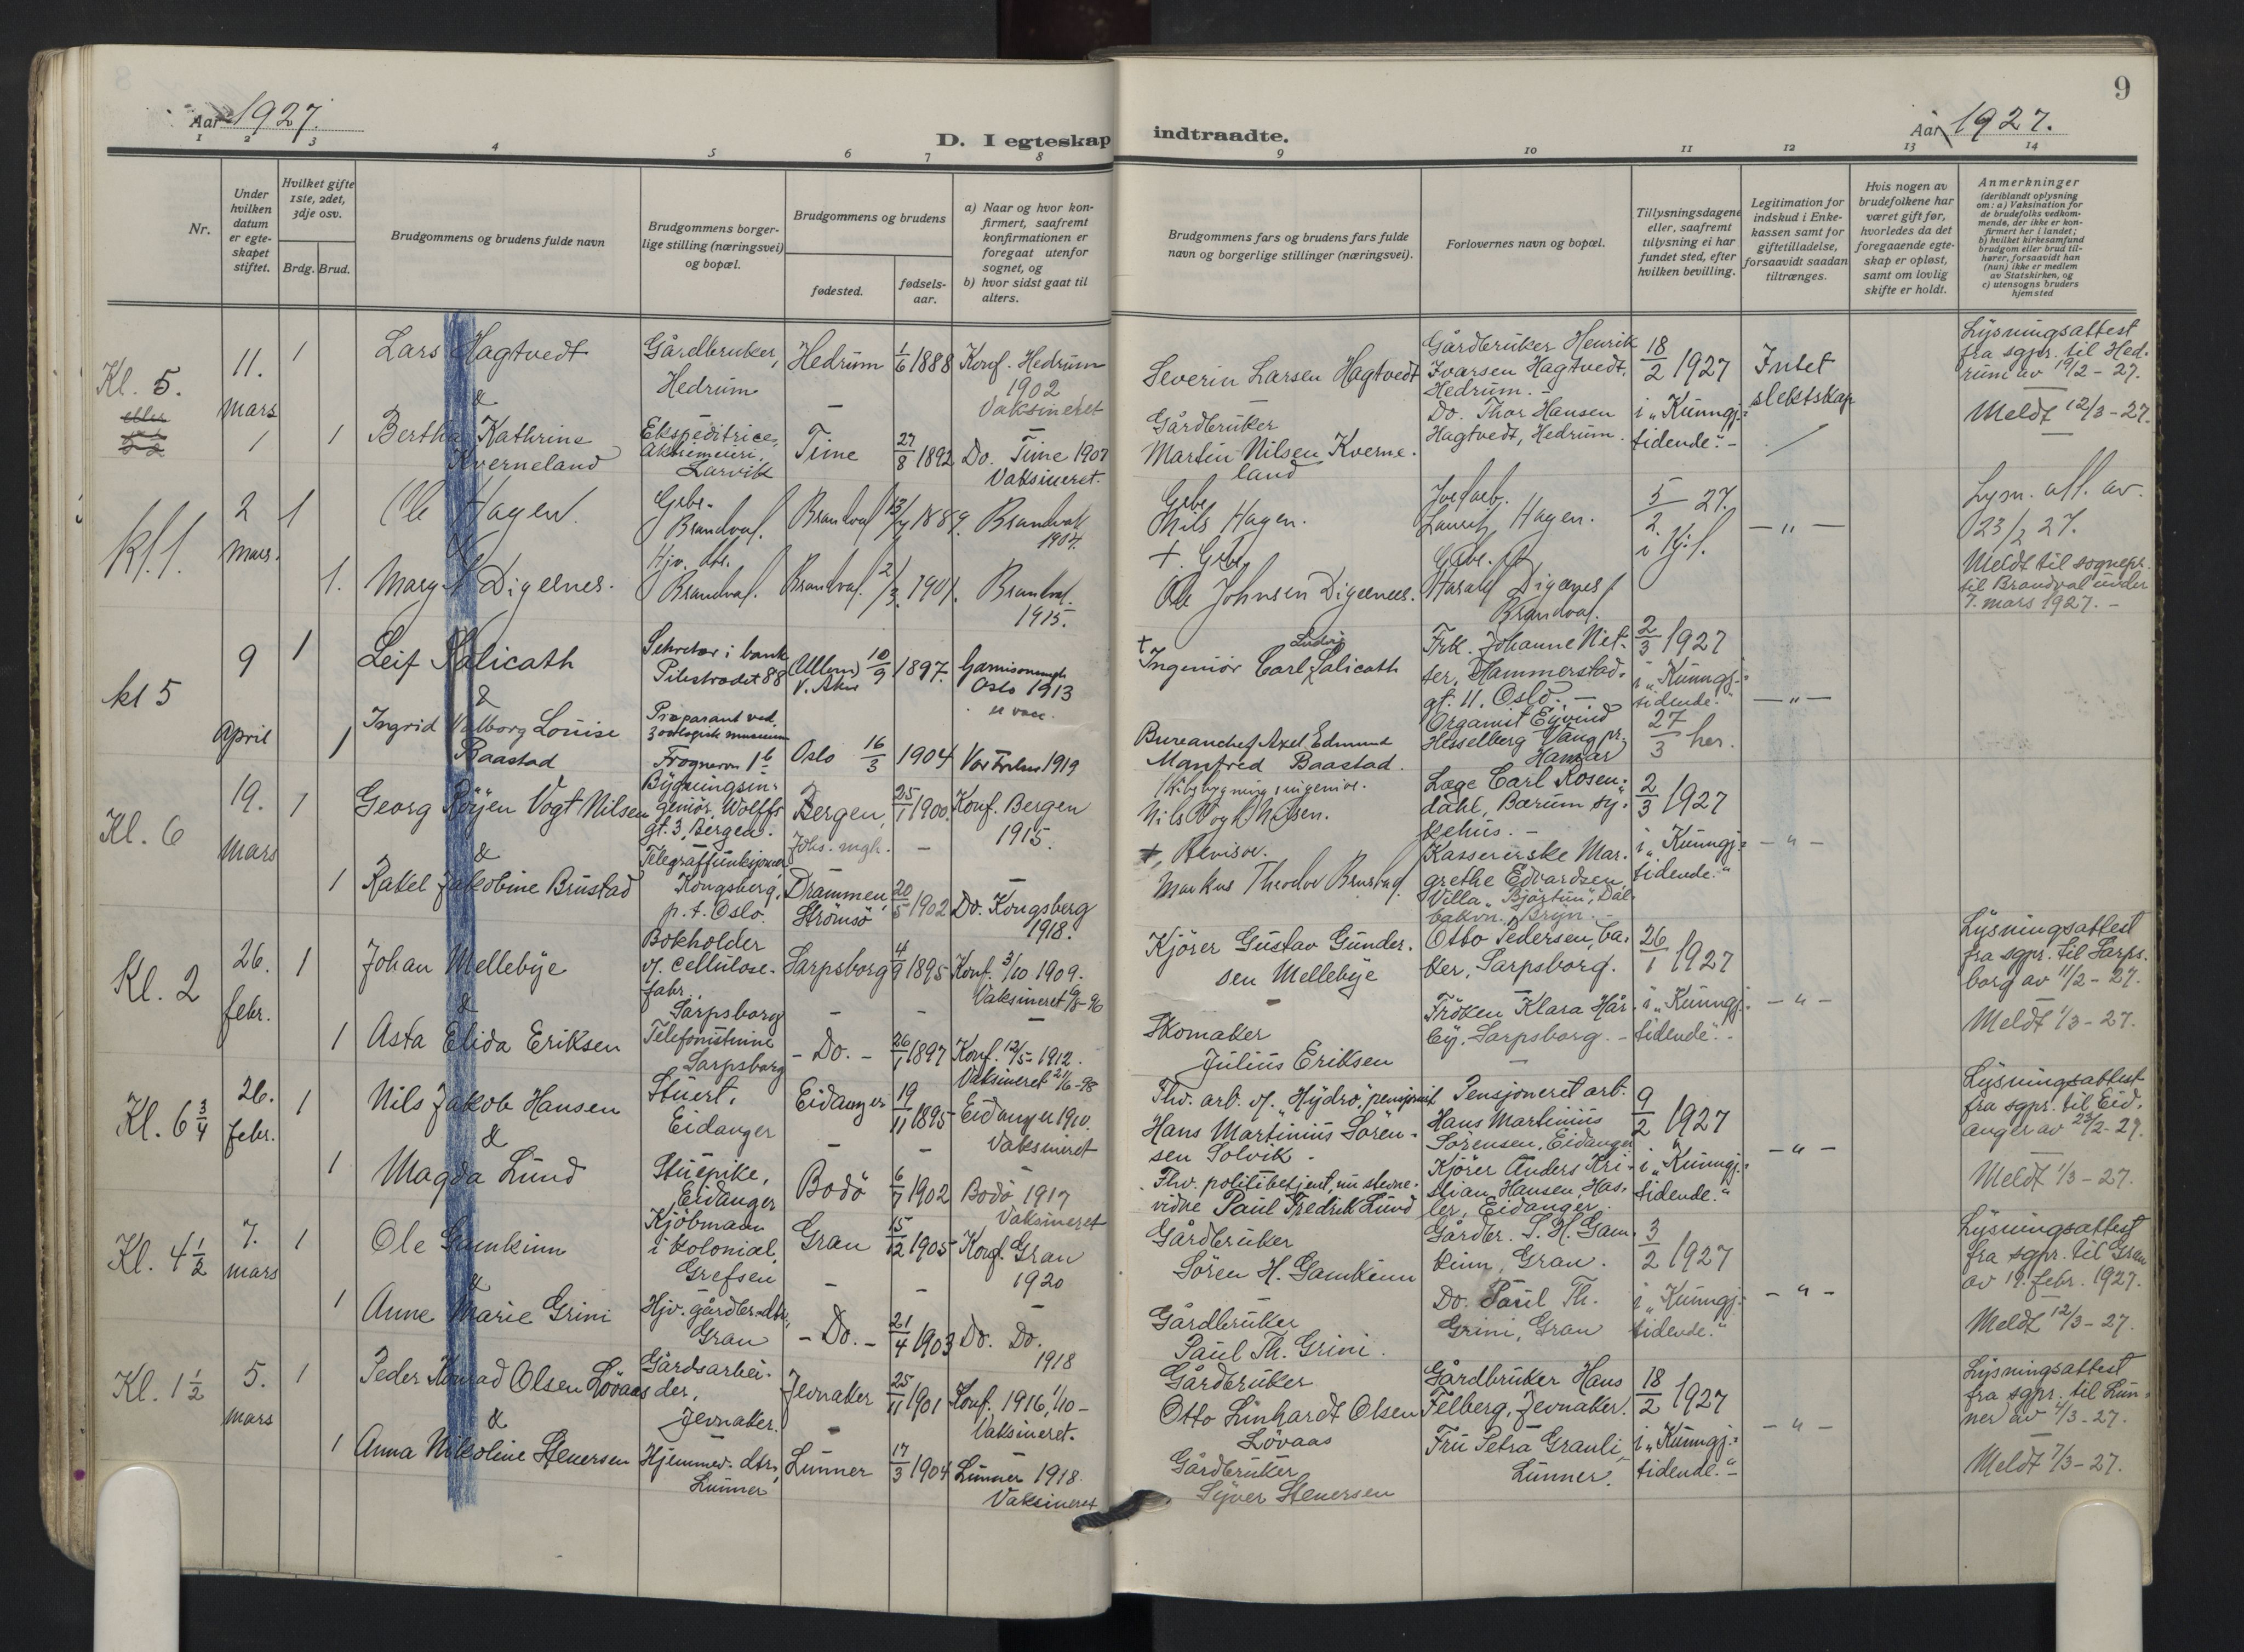 9
Aar 1927.
D. I egteskap indtraadte.
Aar 1927.
1 2 3 4 5 6 7 8 9 10 11 12 13 14
Nr.
Under
hvilken
datum
er egte-
skapet
stiftet.
Hvilket gifte
1ste, 2det,
3dje osv.
Brdg. Brud.
Brudgommens og brudens fulde navn
Brudgommens borger-
lige stilling (næringsvei)
og bopæl.
Brudgommens og brudens
fødested.
fødsels-
aar.
a) Naar og hvor kon-
firmert, saafremt
konfirmationen er
foregaat utenfor
sognet, og
b) hvor sidst gaat til
alters.
Brudgommens fars og brudens fars fulde
navn og borgerlige stillinger (næringsvei).
Forlovernes navn og bopæl.
Tillysningsdagene
eller, saafremt
tillysning ei har
fundet sted, efter
hvilken bevilling.
Legitimation for
indskud i Enke-
kassen samt for
giftetilladelse,
forsaavidt saadan
tiltrænges.
Hvis nogen av
brudefolkene har
været gift før,
hvorledes da det
foregaaende egte-
skap er opløst,
samt om lovlig
skifte er holdt.
Anmerkninger
(deriblandt oplysning
om: a) Vaksination for
de brudefolks vedkom-
mende, der ikke er kon-
firmert her i landet;
b) hvilket kirkesamfund
brudgom eller brud til-
hører, forsaavidt han
(hun) ikke er medlem
av Statskirken, og
c) utensogns bruders
hjemsted
Kl. 5.
11.
mars
1
Lars Hagtvedt
&
Gårdbruker,
Hedrum
Hedrum
1/6 1888
Konf. Hedrum
1902
Vaksineret
Severin Larsen Hagtvedt
Gårdbruker
Gårdbruker Henrik
Ivarsen Hagtvedt,
Hedrum. -
18/2 1927
i „Kunngj.-
tidende". -
Intet
slektskap
Lysningsattest
fra sgpr. til Hed-
rum av 19/2 - 27.
Meldt 12/3 - 27.
1
Bertha Kathrine
Kverneland
Ekspeditrice,
Aktiemeieri,
Larvik
Time
27/8 1892
Do. Time 1907
Vaksineret.
Martin Nilsen Kverne-
land
Do. Thor Hansen
Hagtvedt, Hedrum.
kl. 1.
2
mars.
1
Ole Hagen.
&
Gbr.
Brandval.
Brandval
1889.
Brandval
1904.
Nils Hagen.
Lauritz Hagen.
5/2 27.
i Kj.t.
- " -
Lysn. att. av
23/2 27.
Meldt til sognepr.
til Brandval under
7. mars 1927. -
1.
Mary Digernes.
Hjv. dtr.
Brandval.
Brandval.
2/3 1901.
Brandval.
1915.
+ Gbr.
Ole Johnsen Digernes.
Harald Digernes
Brandval.
kl 5
9
April
1
Leif Salicath
&
Sekretær i bank
Pilestrædet 88
(Ullern)
V. Aker
10/9 1897.
Garnisonsmgh
Oslo 1913
er vacc.
+ Ingeniør Carl Ludvig Salicath
Frk. Johanne Niet-
ter, Hammerstad-
gt. 11. Oslo. -
2/3 1927
i „Kunngj.-
tidende."
27/3 her.
- " -
1
Ingrid Valborg Louise
Baastad
Præparant ved
zoologisk museum
Frognervn 1 b
Oslo
16/3 1904
Vor Frelser 1919
Bureauchef Axel Edmund
Manfred Baastad.
Organist Eyvind
Hesselberg Vang pr.
Hamar
Kl. 6
19.
mars
1
Georg Röyen Vogt Nilsen
&
Bygningsin-
geniör, Wolffs
gt. 3, Bergen.
Bergen,
Johs. mgh.
25/1 1900.
Konf. Bergen
1915.
Skibsbygningsingeniør.
Nils Vogt Nilsen.
Læge Carl Rosen-
dahl, Bærum sy-
kehus. -
2/3 1927
i „Kunngj.-
tidende."
- " -
1
Rakel Jakobine Brustad
Telegraffunksjonær
Kongsberg,
p. t. Oslo.
Drammen,
Strömsö
20/5 1902
Do. Kongsberg
1918.
+, Revisor.
Markus Theodor Brustad.
Kassererske Mar-
grethe Edvardsen,
Villa „Bjørtun", Dal-
bakvn. Bryn. -
Kl. 2
26.
febr.
1
Johan Mellebye
&
Bokholder
v. cellulose-
fabr.
Sarpsborg
Sarpsborg
4/9 1895
Konf. 3/10 1909.
Vaksineret
Kjörer Gustav Gunder-
sen Mellebye
Otto Pedersen, ba-
ker, Sarpsborg.
26/1 1927
i „Kunngj.-
tidende". -
- " -
Lysningsattest
fra sgpr. til Sarps-
borg av 11/2 - 27.
Meldt 1/3 - 27.
1
Asta Elida Eriksen
Telefonistinne
Sarpsborg
- Do. -
26/1 1897
Konf. 12/5 - 1912.
Vaksineret 21/6 - 98
Skomaker
Julius Eriksen
Fröken Klara Hår-
by, Sarpsborg. -
Kl. 6 3/4
26.
febr.
1
Nils Jakob Hansen
&
Stuert,
Eidanger
Eidanger
19/11 1895
Eidanger 1910.
Vaksineret
Fhv. arb. v. „Hydro", pensjonist
Hans Martinius Sören-
sen Solvik -
Pensjoneret arb.
Hans Martinius
Sörensen, Eidanger
9/2 1927
i „Kunngj.-
tidende."
- " -
Lysningsattest
fra sgpr. til Eid-
anger av 24/2 - 27.
Meldt 1/3 - 27.
1
Magda Lund
Stuepike,
Eidanger
Bodö
6/7 1902
Bodö 1917
Vaksineret
Fhv. politibetjent, nu stevne-
vidne Paul Fredrik Lund
Kjörer Anders Kri-
stian Hansen, Has-
ler, Eidanger.
Kl. 4 1/2
7.
mars
1
Ole Gamkinn
&
Kjöbmann
i kolonial,
Grefsen
Gran
15/12 1905
Konf. Gran
1920
Gårdbruker
Sören H. Gamkinn
Gårdbr. S. H. Gam-
kinn, Gran.
3/2 1927
i „Kunngj.-
tidende."
- " -
Lysningsattest
fra sgpr. til Gran
av 19. febr. 1927.
Meldt 12/3 - 27.
1
Anne Marie Grini
Hjv. gårdbr.-dtr.,
Gran
- Do. -
21/4 1903
Do. Do.
1918
Gårdbruker
Paul Th. Grini.
Do. Paul Th.
Grini, Gran
Kl. 1 1/2
5.
mars
1
Peder Konrad Olsen Lövaas
&
Gårdsarbei-
der,
Jevnaker.
Jevnaker
25/11 1901
Konf. 1916, 1/10 -
Vaksineret.
Gårdbruker
Otto Linhardt Olsen
Lövaas
Gårdbruker Hans
Felberg, Jevnaker.
18/2 1927
i „Kunngj.-
tidende." -
- " -
Lysningsattest
fra sgpr. til Lun-
ner av 4/3 - 27.
Meldt 7/3 - 27.
1
Anna Nikoline Stenersen
Hjemmev. dtr.,
Lunner
Lunner
17/3 1904
Lunner 1918.
Vaksineret
Gårdbruker
Syver Stenersen
Fru Petra Grauli,
Lunner.